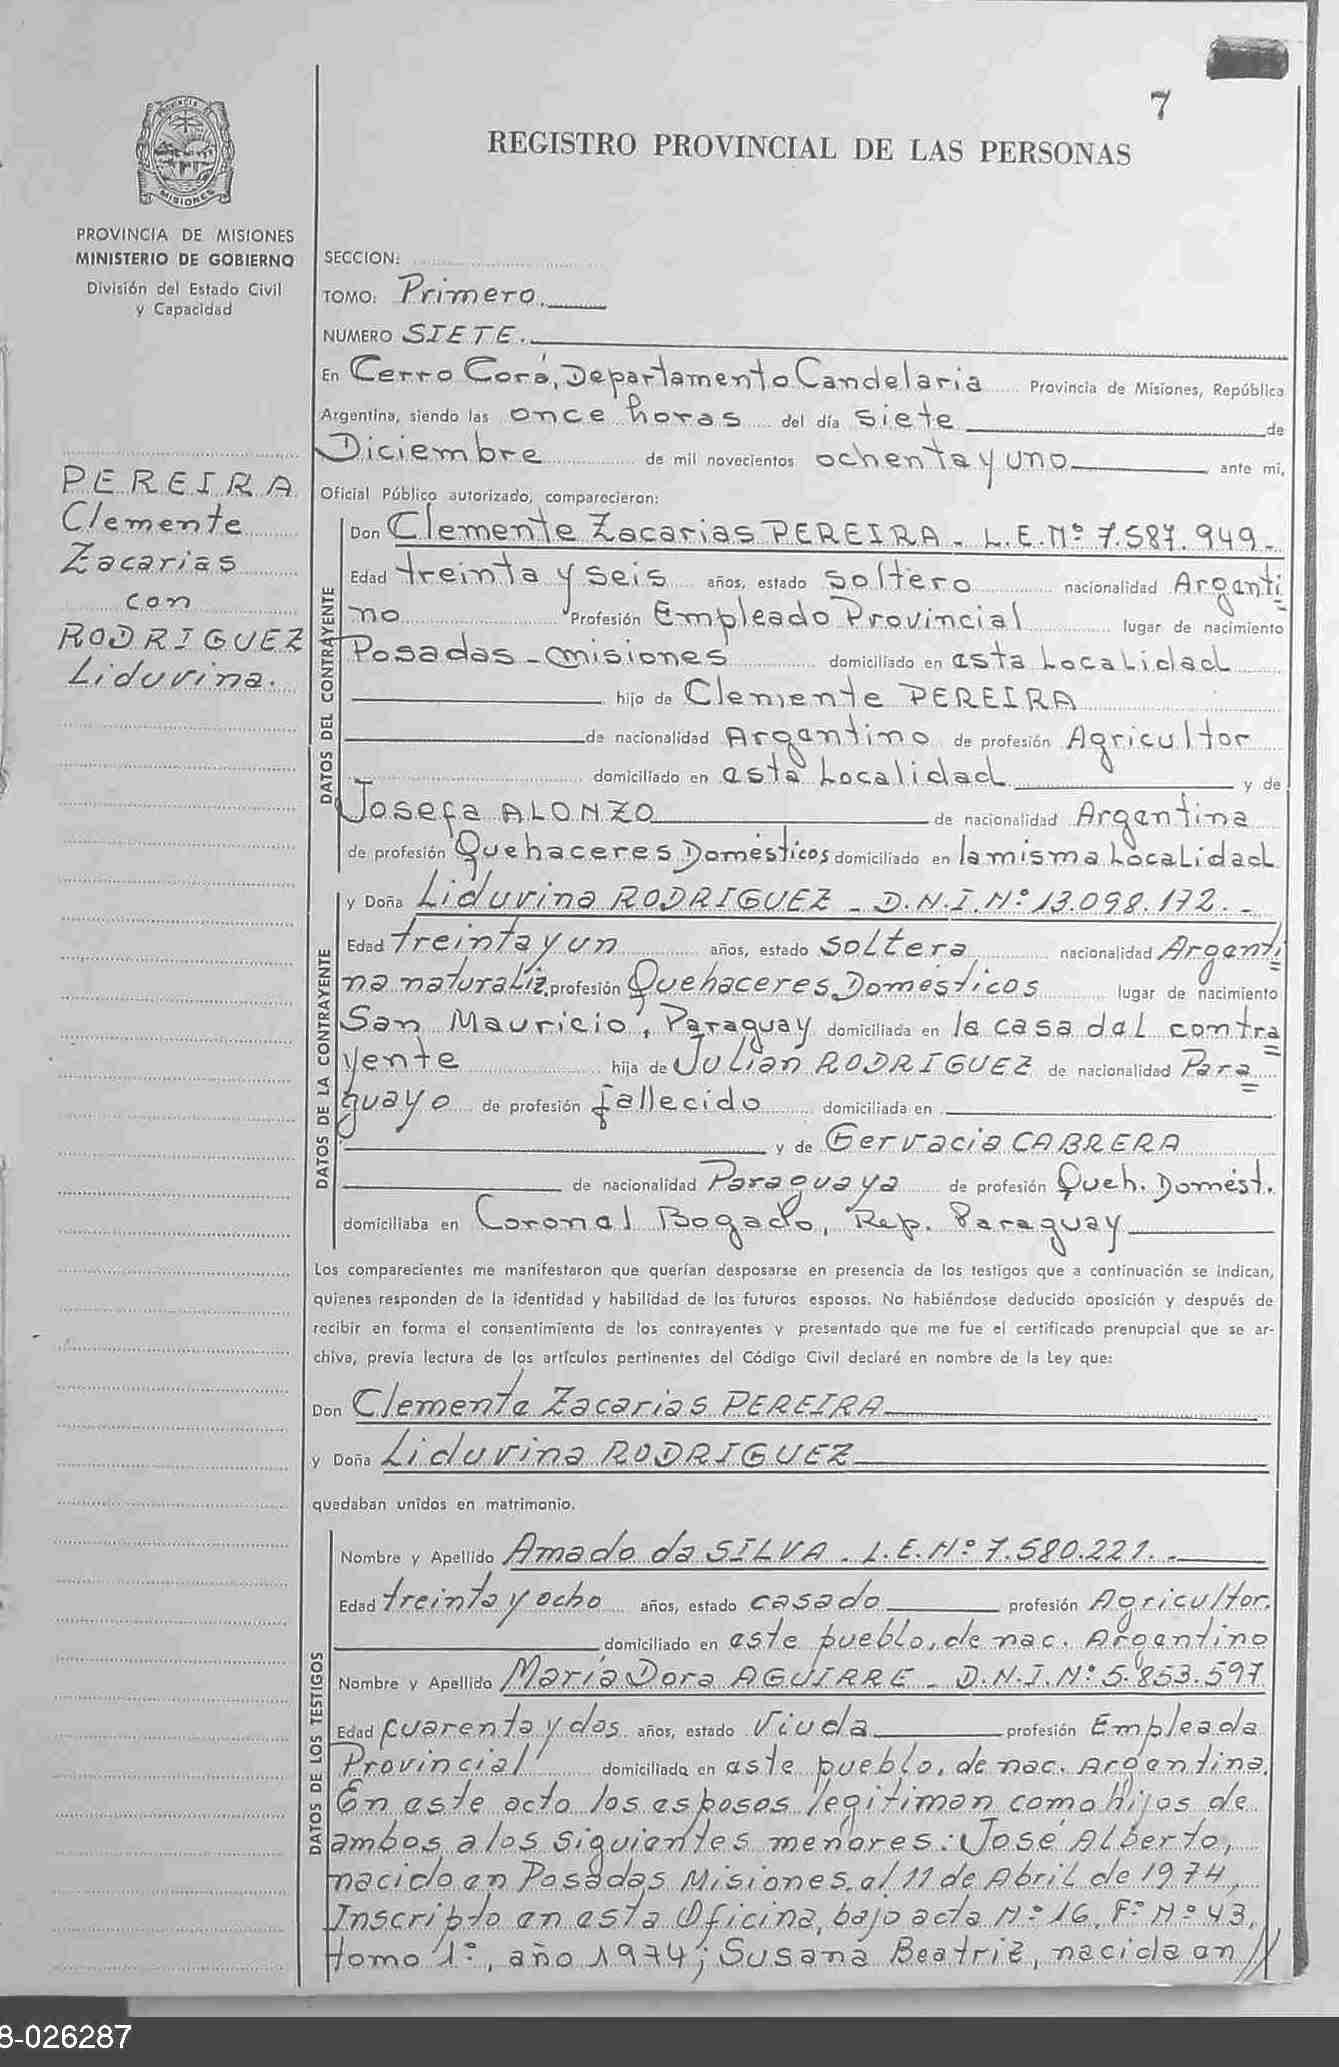 7
REGISTRO PROVINCIAL DE LAS PERSONAS
PROVINCIA DE
MISIONES
PROVINCIA DE MISIONES
MINISTERIO DE GOBIERNO
División del Estado Civil
y Capacidad
PEREIRA
Clemente
Zacarias
con
RODRIGUEZ
Liduvina.
SECCION:
TOMO: Primero.
NUMERO SIETE.
En Cerro Corá, Departamento Candelaria Provincia de Misiones, República
Argentina, siendo las once horas del día siete de
Diciembre de mil novecientos ochenta y uno ante mi,
Oficial Público autorizado, comparecieron:
DATOS DEL CONTRAYENTE
Don Clemente Zacarias PEREIRA - L.E.Nº 7.587.949-
Edad treinta y seis años, estado soltero nacionalidad Argenti
no Profesión Empleado Provincial lugar de nacimiento
Posadas - Misiones domiciliado en esta Localidad
hijo de Clemente PEREIRA
de nacionalidad Argentino de profesión Agricultor
domiciliado en esta Localidad y de
Josefa ALONZO de nacionalidad Argentina
de profesión Quehaceres Domésticos domiciliado en la misma Localidad
DATOS DE LA CONTRAYENTE
y Doña Liduvina RODRIGUEZ - D.N.I.Nº 13.098.172.-
Edad treinta y un años, estado soltera nacionalidad Argenti
na naturaliz. profesión Quehaceres Domésticos lugar de nacimiento
San Mauricio, Paraguay domiciliada en la casa del contra
yente hija de Julian RODRIGUEZ de nacionalidad Para
guayo de profesión fallecido domiciliada en
y de Gervacia CABRERA
de nacionalidad Paraguaya de profesión Queh. Domést.
domiciliaba en Coronel Bogado, Rep. Paraguay
Los comparecientes me manifestaron que querían desposarse en presencia de los testigos que a continuación se indican,
quienes responden de la identidad y habilidad de los futuros esposos. No habiéndose deducido oposición y después de
recibir en forma el consentimiento de los contrayentes y presentado que me fue el certificado prenupcial que se ar-
chiva, previa lectura de los artículos pertinentes del Código Civil declaré en nombre de la Ley que:
Don Clemente Zacarias PEREIRA
y Doña Liduvina RODRIGUEZ
quedaban unidos en matrimonio.
DATOS DE LOS TESTIGOS
Nombre y Apellido Amado da SILVA - L.E.Nº 7.580.221.-
Edad treinta y ocho años, estado casado profesión Agricultor.
domiciliado en este pueblo, de nac. Argentino
Nombre y Apellido María Dora AGUIRRE - D.N.I.Nº 5.853.597
Edad cuarenta y dos años, estado Viuda profesión Empleada
Provincial domiciliada en este pueblo, de nac. Argentina.
En este acto los esposos legitiman como hijos de
ambos a los siguientes menores: José Alberto,
nacido en Posadas Misiones, el 11 de Abril de 1974,
Inscripto en esta Oficina, bajo acta Nº 16, Fº Nº 43,
tomo 1º, año 1974; Susana Beatriz, nacida en //
8-026287